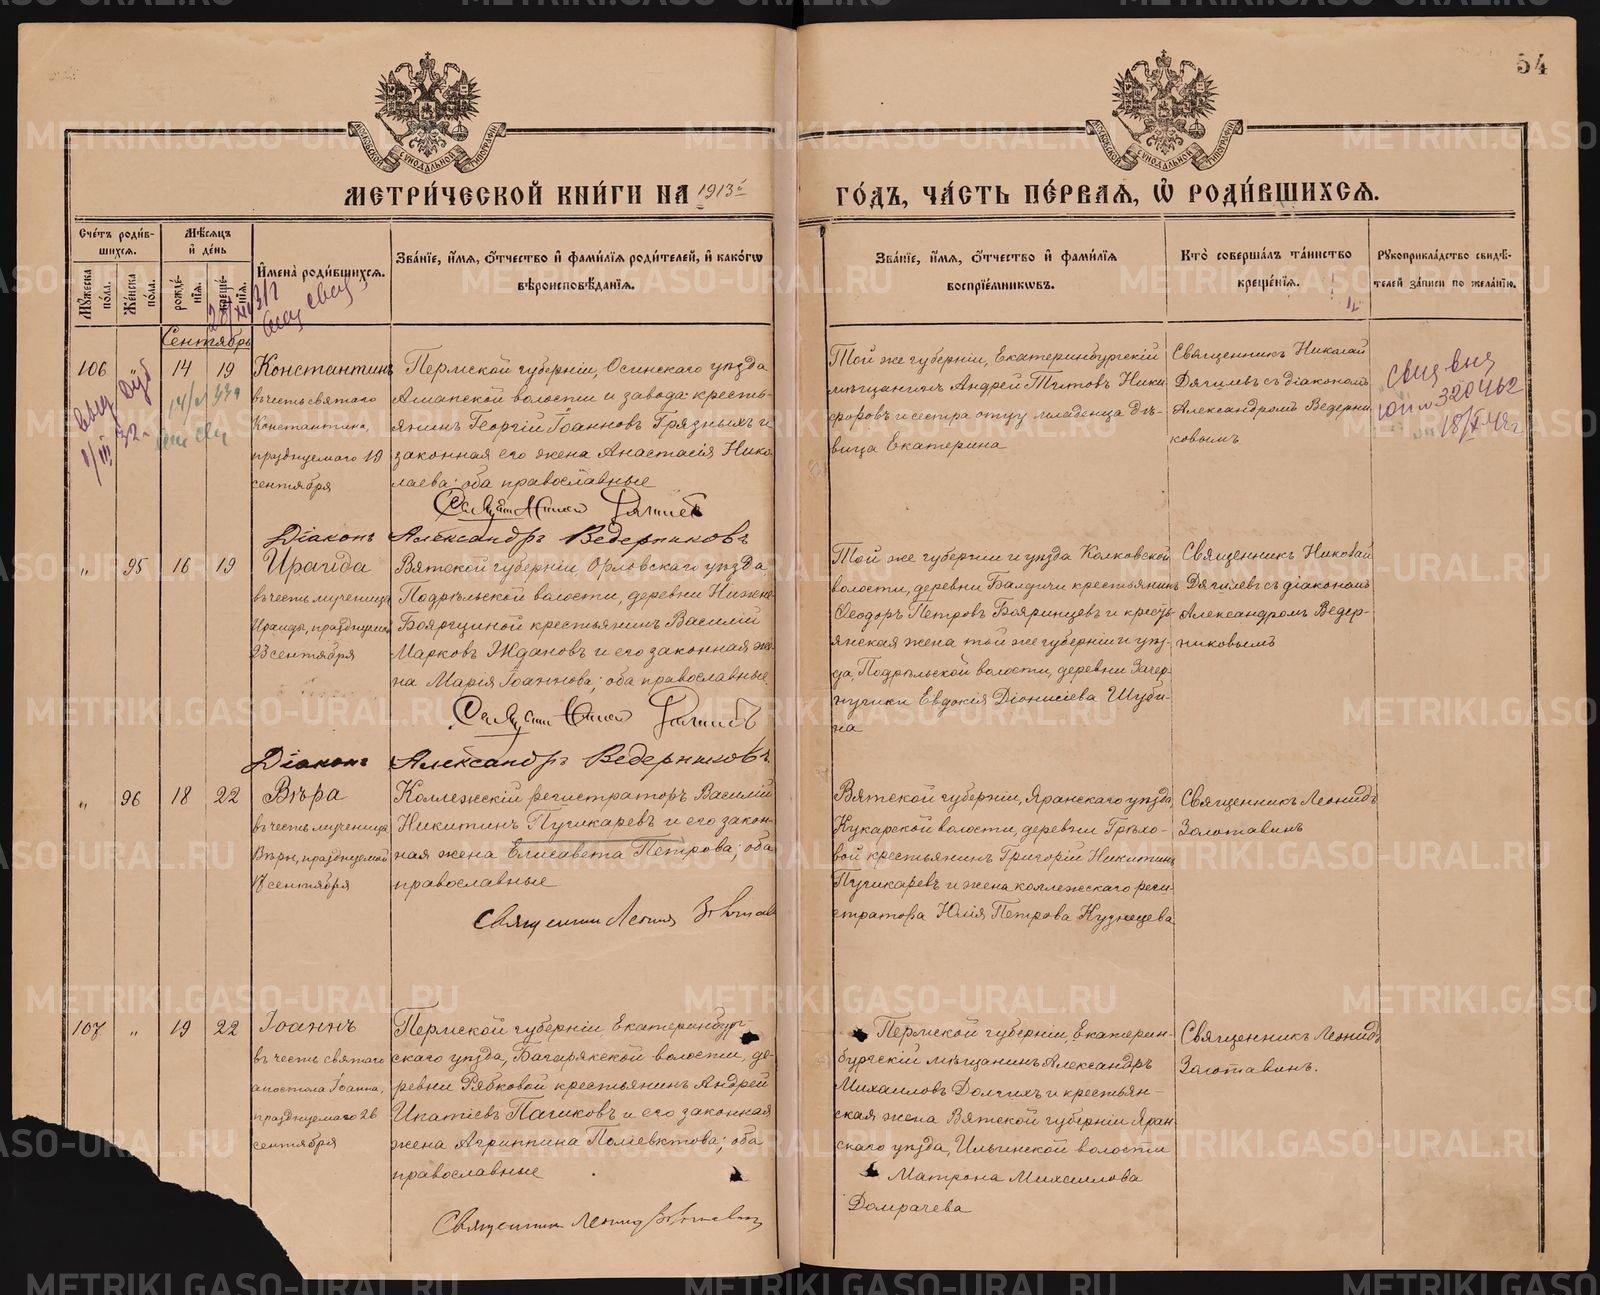 54
МОСКОВСКОЙ СѴНОДАЛЬНОЙ ТИПОГРАФІИ
МОСКОВСКОЙ СѴНОДАЛЬНОЙ ТИПОГРАФІИ
МЕТРИ́ЧЕСКОЙ КНИ́ГИ НА 1913й
ГО́ДЪ, ЧА́СТЬ ПЕ́РВАЯ, Ѡ҆ РОДИ́ВШИХСЯ.
Сче́тъ роди́в-
шихся.
Мꙋ́жеска по́ла.
Же́нска по́ла.
Мѣ́сяцъ
и҆ де́нь
рожде́-
нїя.
креще́-
нїя.
И҆мена̀ роди́вшихся.
Зва́нїе, и҆́мя, ѻ҆́тчество и҆ фами́лїя роди́телей, и҆ како́гѡ
вѣроисповѣ́данїя.
Зва́нїе, и҆́мя, ѻ҆́тчество и҆ фами́лїя
воспрїе́мникѡвъ.
Кто̀ соверша́лъ та́инство
креще́нїя.
Рꙋкоприкла́дство свидѣ́-
телей за́писи по жела́нїю.
Сентябрь
106
14
19
Константинъ
въ честь святаго
Константина,
празднуемаго 19
сентября
Пермской губерніи, Осинскаго уѣзда
Ашапской волости и завода кресть-
янинъ Георгій Іоанновъ Грязныхъ и
законная его жена Анастасія Нико-
лаева; оба православные
Той же губерніи, Екатеринбургскій
мѣщанинъ Андрей Титовъ Ники-
форовъ и сестра отцу младенца дѣ-
вица Екатерина
Священникъ Николай
Дягилевъ съ діакономъ
Александромъ Ведерни-
ковымъ
320462
Діаконъ Александръ Ведерниковъ
"
95
16
19
Ираида
въ честь мученицы
Ираиды, празднуемой
23 сентября
Вятской губерніи, Орловскаго уѣзда,
Подрѣльской волости, деревни Нижне-
Боярщиной крестьянинъ Василій
Марковъ Ждановъ и его законная же-
на Марія Іоаннова; оба православные.
Той же губерніи и уѣзда Колковской
волости, деревни крестьянинъ
Ѳеодоръ Петровъ Бояринцевъ и кресть-
янская жена той же губерніи и уѣз-
да, Подрѣльской волости, деревни
Евдокія Діонисіева Шуби-
на
Священникъ Николай
Дягилевъ съ діакономъ
Александромъ Ведер-
никовымъ
Діаконъ Александръ Ведерниковъ
"
96
18
22
Вѣра
въ честь мученицы
Вѣры, празднуемой
17 сентября
Коллежскій регистраторъ Василій
Никитинъ Пугикаревъ и его закон-
ная жена Елисавета Петрова; оба
православные
Священникъ Леонид
Вятской губерніи, Яранскаго уѣзда,
Кукарской волости, деревни Грѣхо-
вой крестьянинъ Григорій Никитинъ
Пугикаревъ и жена коллежскаго реги-
стратора Юлія Петрова Кузнецева
Священникъ Леонидъ
Золотавинъ
107
"
19
22
Іоаннъ
въ честь святаго
апостола Іоанна,
празднуемаго 26
сентября
Пермской губерніи, Екатеринбург-
скаго уѣзда, Багарякской волости, де-
ревни Рябковой крестьянинъ Андрей
Ипатіевъ Пачиковъ и его законная
жена Агриппина Поліевктова; оба
православные
Священник Леонид
Пермской губерніи, Екатерин-
бургскій мѣщанинъ Александръ
Михаиловъ Долгихъ и крестьян-
ская жена Вятской губерніи Яран-
скаго уѣзда, Ильинской волости
Матрона Михаилова
Домрачева
Священникъ Леонидъ
Золотавинъ.
METRIKI.GASO-URAL.RU